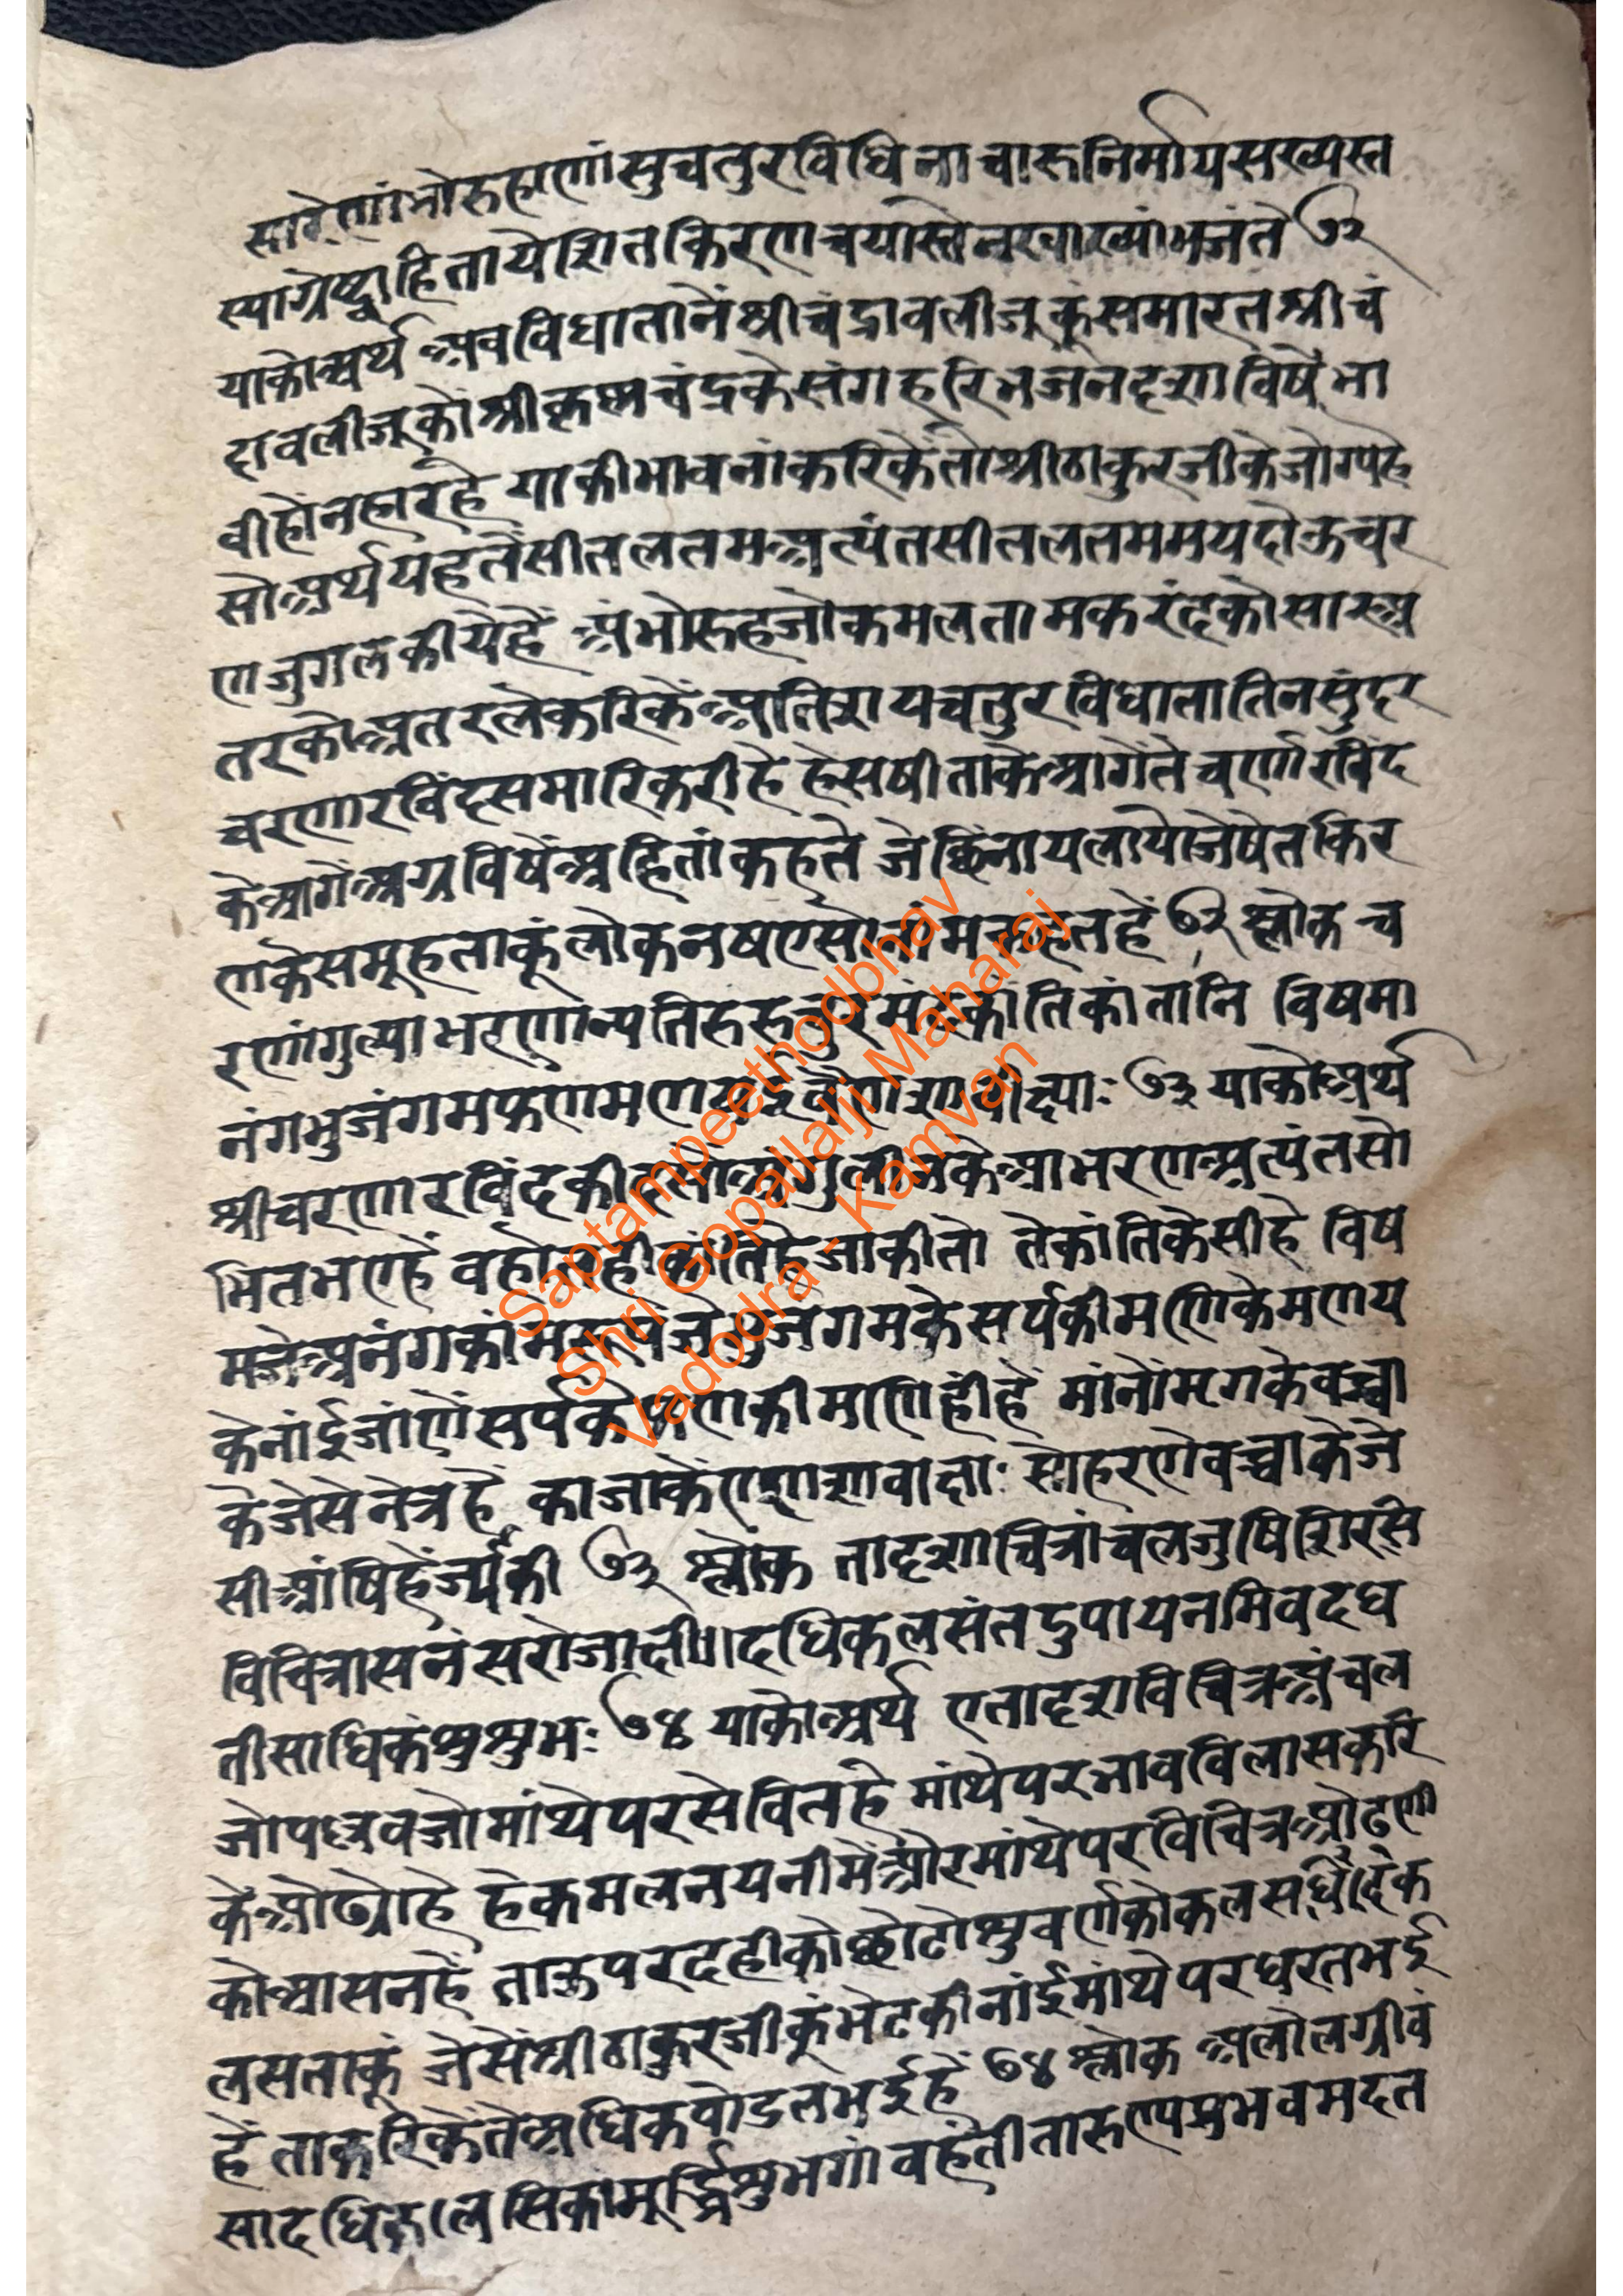 सारेणांभोरुहाणांसुचतुरविधिनाचारुनिर्मायसख्यस्त
स्याग्रेष्ट्वाहितायेशितकिरणचयास्तेनखाख्यांभजंते ७२
याकोअर्थ अबविधातानेंश्रीचंद्रावलीजूकुंसमारतश्रीचं
द्रावलीजूकोंश्रीकृष्णचंद्रकेसंगहरिभजनदशाविषेंभा
वीहोंनहाररहे याकीभावनांकरिकेंतोश्रीठाकुरजीकेजोग्यहे
सोअर्थयहतेंसीतलतमअत्यंतसीतलतममयदोऊचर
णजुगलकीयेहैं अंभोरुहजोकमलतामकरंदकोसारअ
तरकोअतरलेकरिकेंअतिशयचतुरविधातातिनसुंदर
चरणारविंदसमारिकरीहे हेसषीताकेआगेंतेचर्णारविंद
केआगेंअग्रविषेंअहितांकहते जे नायलायोजेषेतकिर
णकेसमूहताकूंलोकनषएसोनांमकहतहें ७२ श्लोक च
रणांगुल्याभरणान्यतिरुरुचुर कांतिकांतानि विषमा
नंगभुजंगमफणमणय याकोअर्थ
श्रीचरणारविंदकी अंगुलीनकेआभरणअत्यंतसो
भितभएहें वहोतही जाकीतो तेकांतिकेसीहे विष
मजेअनंगकांम भुजंगमकेसर्पकीमणिकेमणय
केनांईजांणेंसर्पके णकीमाणिहींहें मांनोंमृगकेवच्चा
केजेसेनेत्रहें काजाकेंएणशावाक्षाः सोहरणेवच्चाकेजे
सीआंषिहेंज्यंकी ७३ श्लोक तादृशाचित्रांचलजुषिशिरसि
विचित्रासनंसरोजाक्षी॥दधिकलसंतदुपायनमिवदध
तीसाधिकंशुशुभः ७४ याकोअर्थ एतादृशविचित्रअंचल
जोपल्लवजोमांथेपरसेवितहे मांथेपरभावविलासकरि
केओढ्योहे हेकमलनयनीमेंऔरमांथेपरविचित्रओढणी
कोआसनहें ताऊपरदहीकोछोटोशुवर्णकोकलस क
लसताकूं जेसेंश्रीठाकुरजीकूंभेटकीनांईमांथेपरधरतभई
हें ताकरिकेंतेंअधिकषोडलभईहें ७४ श्लोक अलोलग्रीवं
सादधिकलसिकामूर्द्ध्निशुभगांवहंतीतारुण्यप्रभवमदत